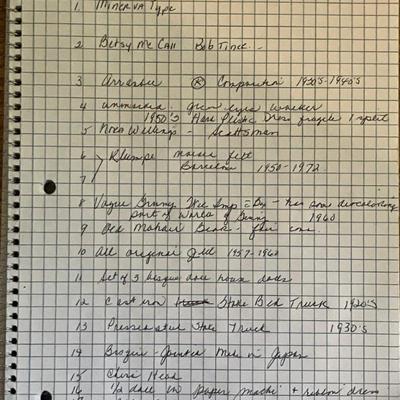 1. Minerva Type
2 Betsy McCall Bob Tince
3 Arranbee Ⓡ Composition 1930's-1940's
4 unmarked green eyes walker
1950's Hard Plastic Dress fragile & split
5 Nora Wellings - Scottsman
6 Klumpe makes felt
7 Barcelona 1950-1972
8 Vogue Ginny has some discoloring
part of World of Ginny 1960
9 Old Mohair Bear
10 All original Jill 1957-1960
11 Set of 3 bisque doll house dolls
12 Cast iron Stake Bed Truck 1920's
13 Pressed steel Stake Truck 1930's
14 Bisque - Jointed Made in Japan
15 China Head
16 1/2 doll in paper mache & ribbon dress
17